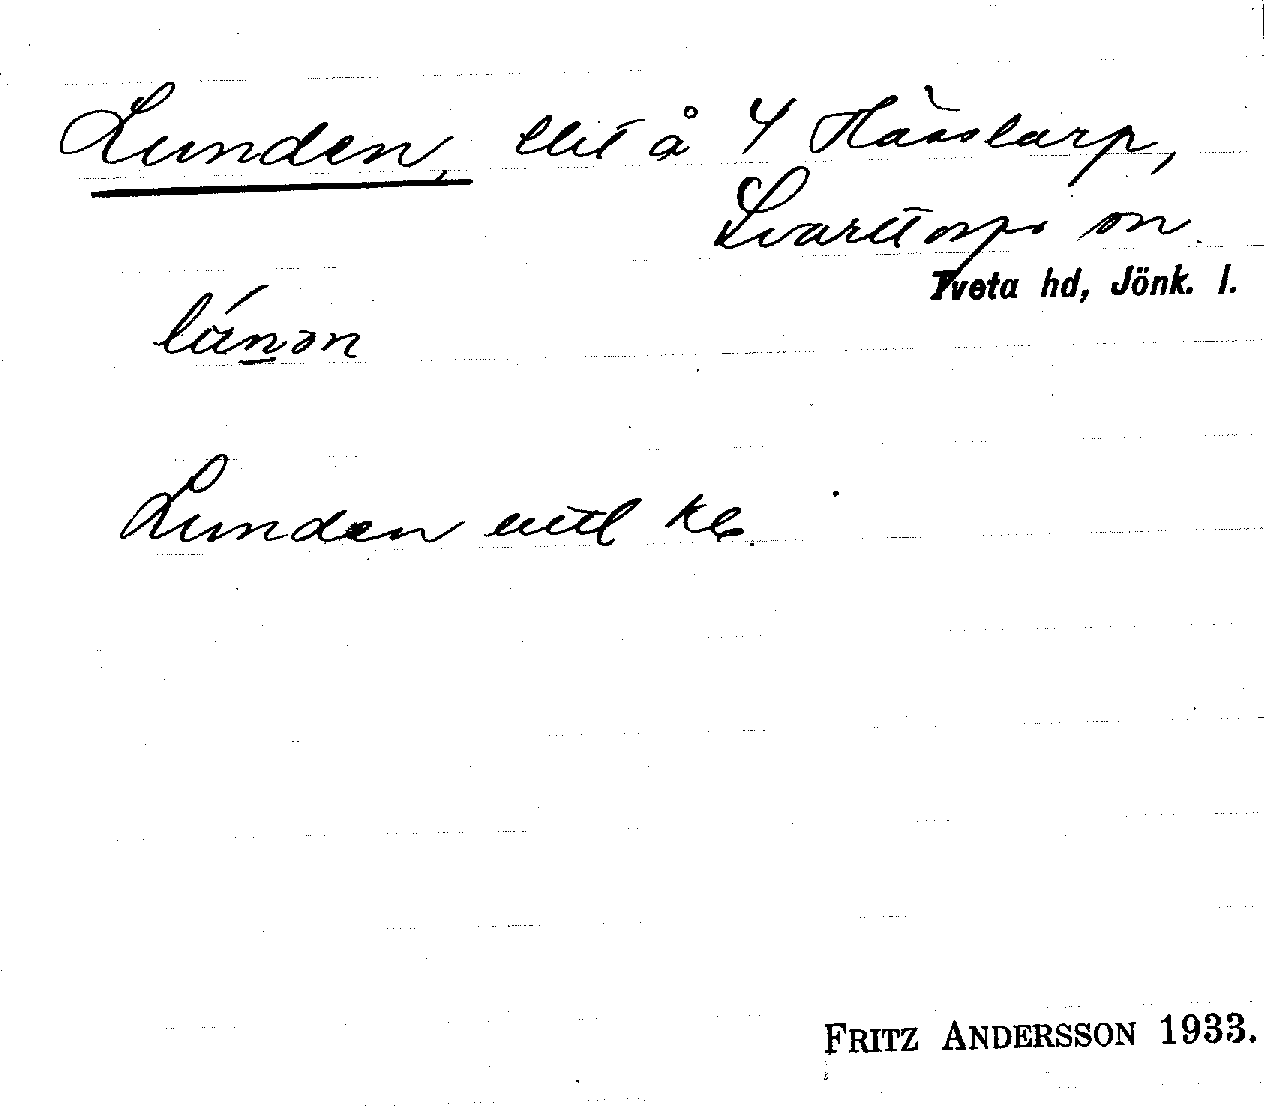 Lunden, lht å 4 Hässlarp,
Svarttorps sn.
Tveta hd, Jönk. l.
Lunden uttl kb.
FRITZ ANDERSSON 1933.